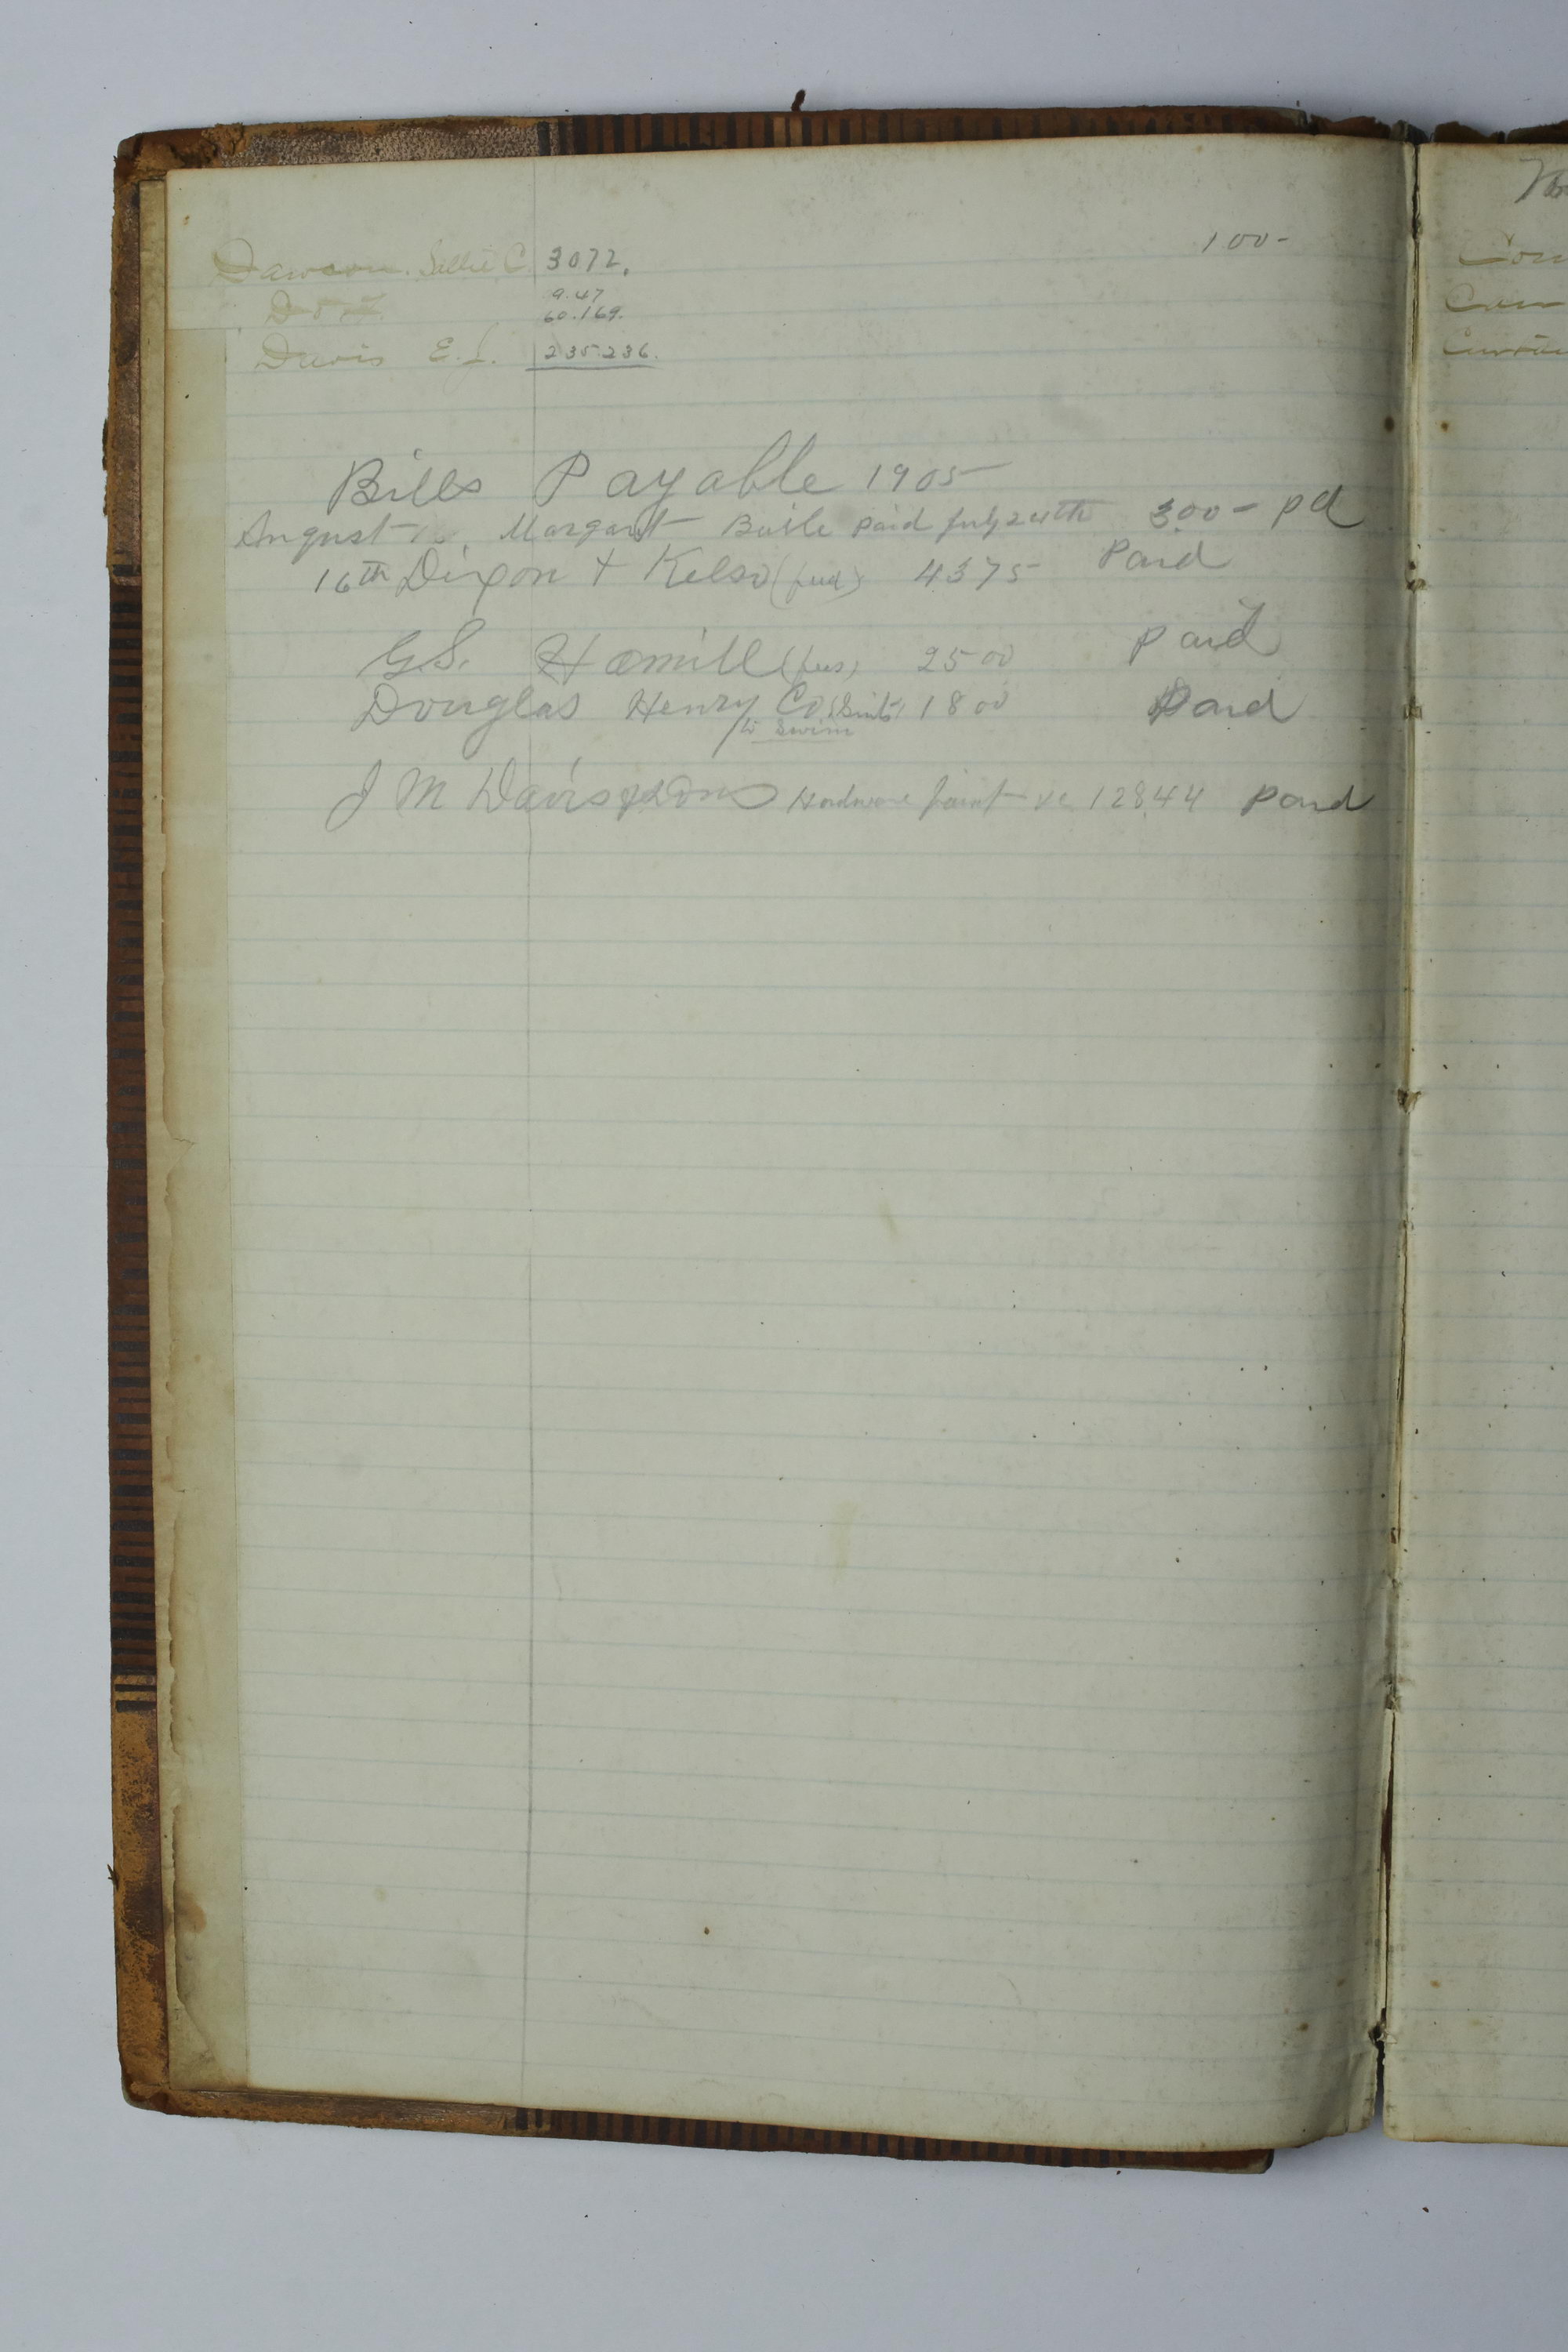 100-
Dawson. Sallie C. 30.72.
9.47
60.169.
Davis E. J. 235.236.
Bills Payable 1905
August Margart Buile paid July 24th 300- pd
16th Dixon + Kelso (feed) 4375 Paid
G.S. Hamill 2500 paid
Douglas Henry Co 1800 Paid
J M Davis & Sons Hardware paint &c 128.44 paid
Con
Cur